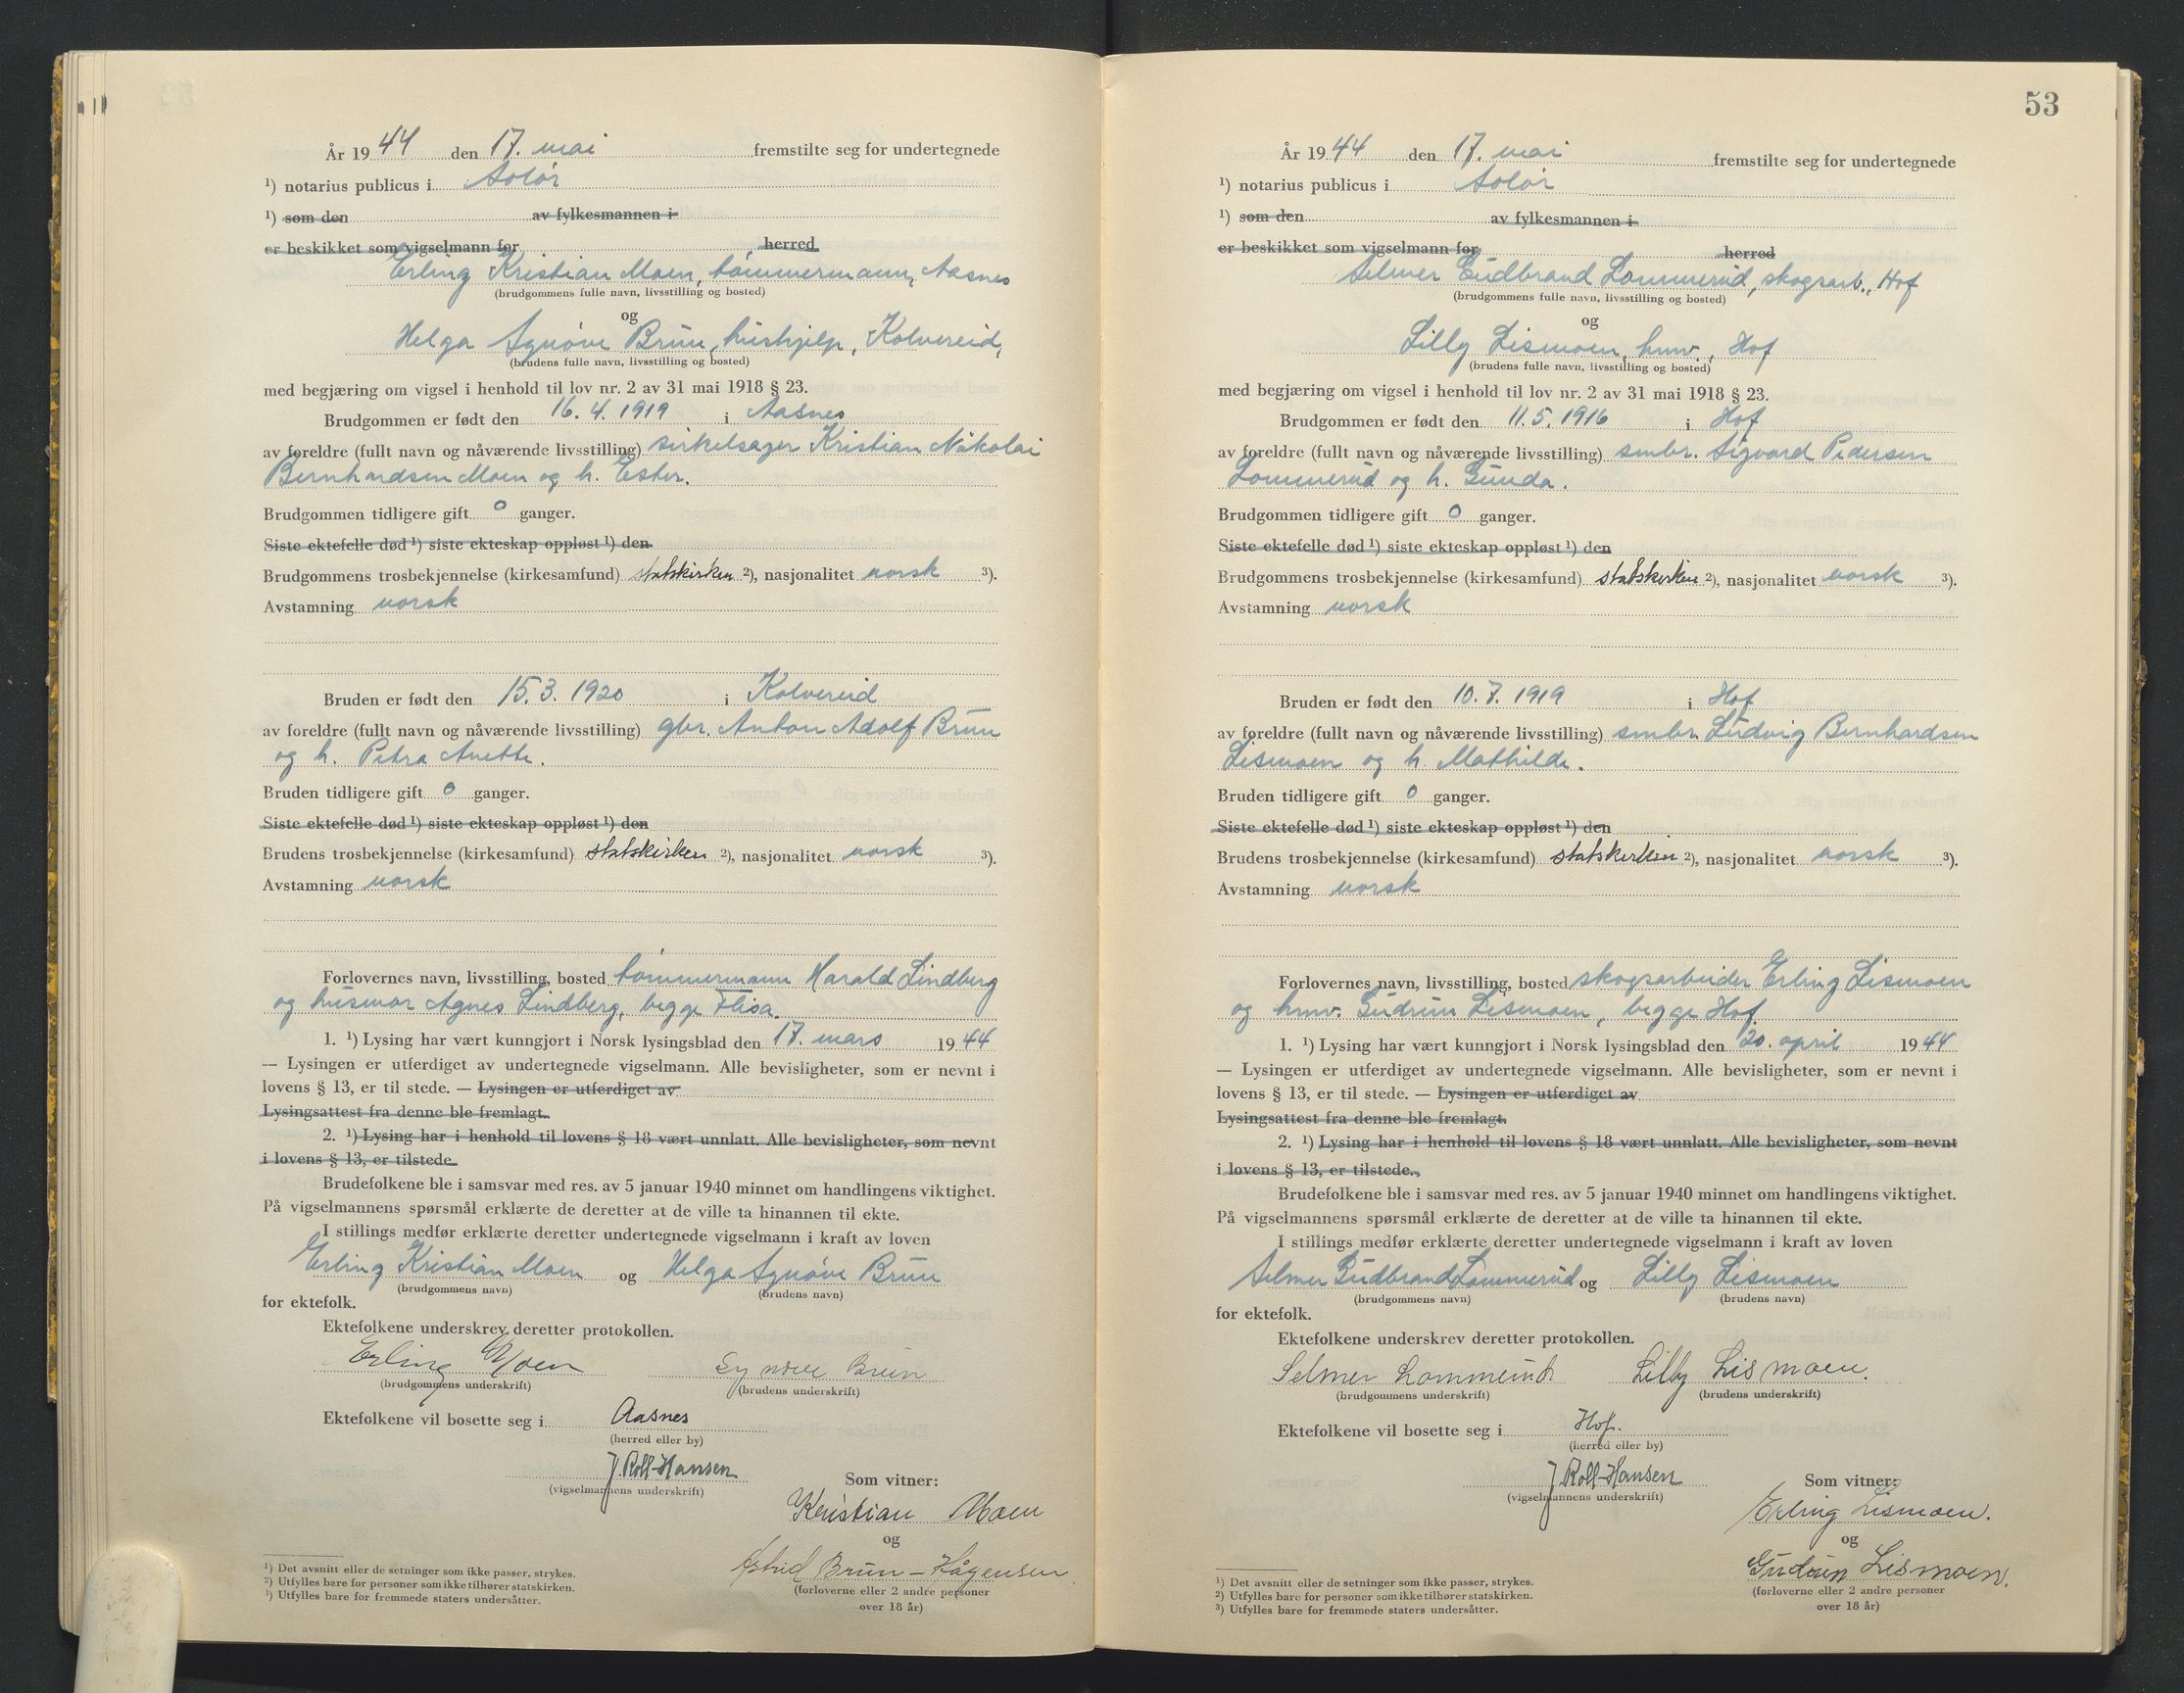 År 1944 den 17. mai fremstilte seg for undertegnede
¹) notarius publicus i Solør
¹) som den av fylkesmannen i
er beskikket som vigselmann for herred
Erling Kristian Moen, tømmermann, Aasnes
(brudgommens fulle navn, livsstilling og bosted)
og
Helga Synøve Brun, hushjelp, Kolvereid,
(brudens fulle navn, livsstilling og bosted)
med begjæring om vigsel i henhold til lov nr. 2 av 31 mai 1918 § 23.
Brudgommen er født den 16. 4. 1919 i Aasnes
av foreldre (fullt navn og nåværende livsstilling) sirkelsager Kristian Nikolai
Bernhardsen Moen og h. Ester.
Brudgommen tidligere gift 0 ganger.
Siste ektefelle død ¹) siste ekteskap oppløst ¹) den
Brudgommens trosbekjennelse (kirkesamfund) statskirken ²), nasjonalitet norsk ³).
Avstamning norsk
Bruden er født den 15. 3. 1920 i Kolvereid
av foreldre (fullt navn og nåværende livsstilling) gbr. Anton Adolf Brun
og h. Petra Anette.
Bruden tidligere gift 0 ganger.
Siste ektefelle død ¹) siste ekteskap oppløst ¹) den
Brudens trosbekjennelse (kirkesamfund) statskirken ²), nasjonalitet norsk ³).
Avstamning norsk
Forlovernes navn, livsstilling, bosted tømmermann Harald Lindberg
og husmor Agnes Lindberg, begge Flisa.
1. ¹) Lysing har vært kunngjort i Norsk lysingsblad den 17. mars 1944
— Lysingen er utferdiget av undertegnede vigselmann. Alle bevisligheter, som er nevnt i
lovens § 13, er til stede. — Lysingen er utferdiget av
Lysingsattest fra denne ble fremlagt.
2. ¹) Lysing har i henhold til lovens § 18 vært unnlatt. Alle bevisligheter, som nevnt
i lovens § 13, er tilstede.
Brudefolkene ble i samsvar med res. av 5 januar 1940 minnet om handlingens viktighet.
På vigselmannens spørsmål erklærte de deretter at de ville ta hinannen til ekte.
I stillings medfør erklærte deretter undertegnede vigselmann i kraft av loven
Erling Kristian Moen og Helga Synøve Brun
(brudgommens navn) (brudens navn)
for ektefolk.
Ektefolkene underskrev deretter protokollen.
Erling Moen Synøve Brun
(brudgommens underskrift) (brudens underskrift)
Ektefolkene vil bosette seg i Aasnes
(herred eller by)
J. Roll-Hansen
(vigselmannens underskrift)
Som vitner:
Kristian Moen
og
Astrid Brun-Hågensen
(forloverne eller 2 andre personer
over 18 år)
¹) Det avsnitt eller de setninger som ikke passer, strykes.
²) Utfylles bare for personer som ikke tilhører statskirken.
³) Utfylles bare for fremmede staters undersåtter.
53
År 1944 den 17. mai fremstilte seg for undertegnede
¹) notarius publicus i Solør
¹) som den av fylkesmannen i
er beskikket som vigselmann for herred
Selmer Gudbrand Lommerud, skogsarb., Hof
(brudgommens fulle navn, livsstilling og bosted)
og
Lilly Lismoen, hmv., Hof
(brudens fulle navn, livsstilling og bosted)
med begjæring om vigsel i henhold til lov nr. 2 av 31 mai 1918 § 23.
Brudgommen er født den 11. 5. 1916 i Hof
av foreldre (fullt navn og nåværende livsstilling) smbr. Sigvard Pedersen
Lommerud og h. Gunda.
Brudgommen tidligere gift 0 ganger.
Siste ektefelle død ¹) siste ekteskap oppløst ¹) den
Brudgommens trosbekjennelse (kirkesamfund) statskirken ²), nasjonalitet norsk ³).
Avstamning norsk
Bruden er født den 10. 7. 1919 i Hof
av foreldre (fullt navn og nåværende livsstilling) smbr. Ludvig Bernhardsen
Lismoen og h. Mathilde.
Bruden tidligere gift 0 ganger.
Siste ektefelle død ¹) siste ekteskap oppløst ¹) den
Brudens trosbekjennelse (kirkesamfund) statskirken ²), nasjonalitet norsk ³).
Avstamning norsk
Forlovernes navn, livsstilling, bosted skogsarbeider Erling Lismoen
og hmv. Gudrun Lismoen, begge Hof.
1. ¹) Lysing har vært kunngjort i Norsk lysingsblad den 20. april 1944
— Lysingen er utferdiget av undertegnede vigselmann. Alle bevisligheter, som er nevnt i
lovens § 13, er til stede. — Lysingen er utferdiget av
Lysingsattest fra denne ble fremlagt.
2. ¹) Lysing har i henhold til lovens § 18 vært unnlatt. Alle bevisligheter, som nevnt
i lovens § 13, er tilstede.
Brudefolkene ble i samsvar med res. av 5 januar 1940 minnet om handlingens viktighet.
På vigselmannens spørsmål erklærte de deretter at de ville ta hinannen til ekte.
I stillings medfør erklærte deretter undertegnede vigselmann i kraft av loven
Selmer Gudbrand Lommerud og Lilly Lismoen
(brudgommens navn) (brudens navn)
for ektefolk.
Ektefolkene underskrev deretter protokollen.
Selmer Lommerud Lilly Lismoen.
(brudgommens underskrift) (brudens underskrift)
Ektefolkene vil bosette seg i Hof.
(herred eller by)
J. Roll-Hansen
(vigselmannens underskrift)
Som vitner:
Erling Lismoen.
og
Gudrun Lismoen.
(forloverne eller 2 andre personer
over 18 år)
¹) Det avsnitt eller de setninger som ikke passer, strykes.
²) Utfylles bare for personer som ikke tilhører statskirken.
³) Utfylles bare for fremmede staters undersåtter.